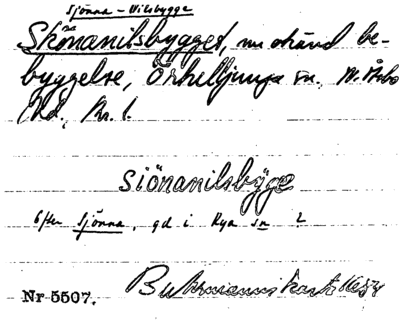 Sjönna-Nilsbygge
Skönanilsbygget, nu okänd be-
byggelse, Örkelljunga sn, N. Åsbo
hd, Kr. l.
Siönanilsbÿge
Efter Sjönna, gd i Rya sn ?
Buhrmanns karta
Nr 5507.